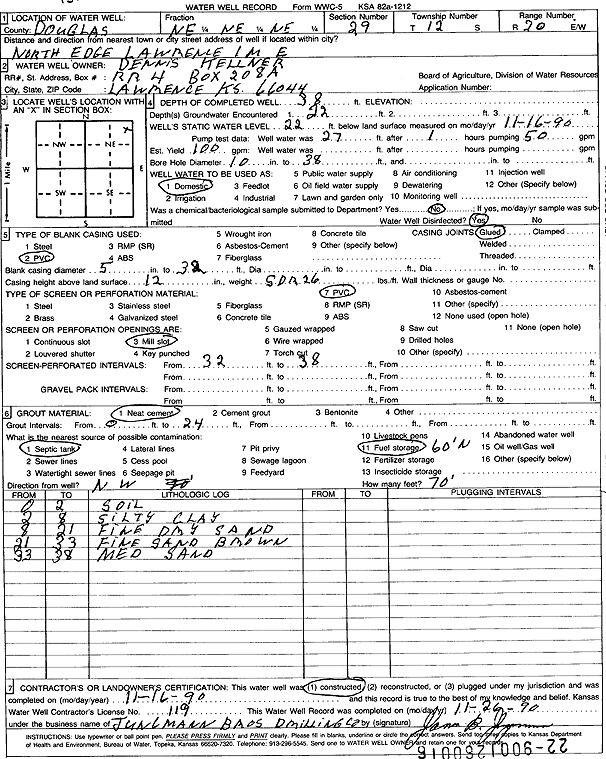 WATER WELL RECORD Form WWC-5 KSA 82a-1212
1 LOCATION OF WATER WELL: Fraction Section Number Township Number Range Number
County: DOUGLAS NE ¼ NE ¼ NE ¼ 29 T 12 S R 20 E/W
Distance and direction from nearest town or city street address of well if located within city?
NORTH EDGE LAWRENCE 1M E
2 WATER WELL OWNER: DENNIS KELLNER
RR#, St. Address, Box # : RR4 BOX 208A Board of Agriculture, Division of Water Resources
City, State, ZIP Code : LAWRENCE KS. 66044 Application Number:
3 LOCATE WELL'S LOCATION WITH AN "X" IN SECTION BOX:
N
NW NE
W E
SW SE
S
1 Mile
4 DEPTH OF COMPLETED WELL 38 ft. ELEVATION:
Depth(s) Groundwater Encountered 1. 22 ft. 2. ft. 3. ft.
WELL'S STATIC WATER LEVEL 22 ft. below land surface measured on mo/day/yr 11-16-90
Pump test data: Well water was 27 ft. after 1 hours pumping 50 gpm
Est. Yield 100 gpm: Well water was ft. after hours pumping gpm
Bore Hole Diameter 10 in. to 38 ft., and in. to ft.
WELL WATER TO BE USED AS: 5 Public water supply 8 Air conditioning 11 Injection well
1 Domestic 3 Feedlot 6 Oil field water supply 9 Dewatering 12 Other (Specify below)
2 Irrigation 4 Industrial 7 Lawn and garden only 10 Monitoring well
Was a chemical/bacteriological sample submitted to Department? Yes No ; If yes, mo/day/yr sample was submitted
Water Well Disinfected? Yes No
5 TYPE OF BLANK CASING USED: 5 Wrought iron 8 Concrete tile CASING JOINTS: Glued Clamped
1 Steel 3 RMP (SR) 6 Asbestos-Cement 9 Other (specify below) Welded
2 PVC 4 ABS 7 Fiberglass Threaded
Blank casing diameter 5 in. to 32 ft., Dia in. to ft., Dia in. to ft.
Casing height above land surface 12 in., weight SDR26 lbs./ft. Wall thickness or gauge No.
TYPE OF SCREEN OR PERFORATION MATERIAL: 7 PVC 10 Asbestos-cement
1 Steel 3 Stainless steel 5 Fiberglass 8 RMP (SR) 11 Other (specify)
2 Brass 4 Galvanized steel 6 Concrete tile 9 ABS 12 None used (open hole)
SCREEN OR PERFORATION OPENINGS ARE: 5 Gauzed wrapped 8 Saw cut 11 None (open hole)
1 Continuous slot 3 Mill slot 6 Wire wrapped 9 Drilled holes
2 Louvered shutter 4 Key punched 7 Torch cut 10 Other (specify)
SCREEN-PERFORATED INTERVALS: From 32 ft. to 38 ft., From ft. to ft.
From ft. to ft., From ft. to ft.
GRAVEL PACK INTERVALS: From ft. to ft., From ft. to ft.
From ft. to ft., From ft. to ft.
6 GROUT MATERIAL: 1 Neat cement 2 Cement grout 3 Bentonite 4 Other
Grout Intervals: From 0 ft. to 24 ft., From ft. to ft., From ft. to ft.
What is the nearest source of possible contamination: 10 Livestock pens 14 Abandoned water well
1 Septic tank 4 Lateral lines 7 Pit privy 11 Fuel storage 60' N 15 Oil well/Gas well
2 Sewer lines 5 Cess pool 8 Sewage lagoon 12 Fertilizer storage 16 Other (specify below)
3 Watertight sewer lines 6 Seepage pit 9 Feedyard 13 Insecticide storage
Direction from well? NW How many feet? 70'
FROM TO LITHOLOGIC LOG FROM TO PLUGGING INTERVALS
0 2 SOIL
2 8 SILTY CLAY
8 21 FINE DRY SAND
21 33 FINE SAND BROWN
33 38 MED SAND
7 CONTRACTOR'S OR LANDOWNER'S CERTIFICATION: This water well was (1) constructed, (2) reconstructed, or (3) plugged under my jurisdiction and was
completed on (mo/day/year) 11-16-90 and this record is true to the best of my knowledge and belief. Kansas
Water Well Contractor's License No. 119 This Water Well Record was completed on (mo/day/yr) 11-26-90
under the business name of JUNGMANN BROS DRILLING CO by (signature)
INSTRUCTIONS: Use typewriter or ball point pen, PLEASE PRESS FIRMLY and PRINT clearly. Please fill in blanks, underline or circle the correct answers. Send top three copies to Kansas Department
of Health and Environment, Bureau of Water, Topeka, Kansas 66620-7320. Telephone: 913-296-5545. Send one to WATER WELL OWNER and retain one for your records.